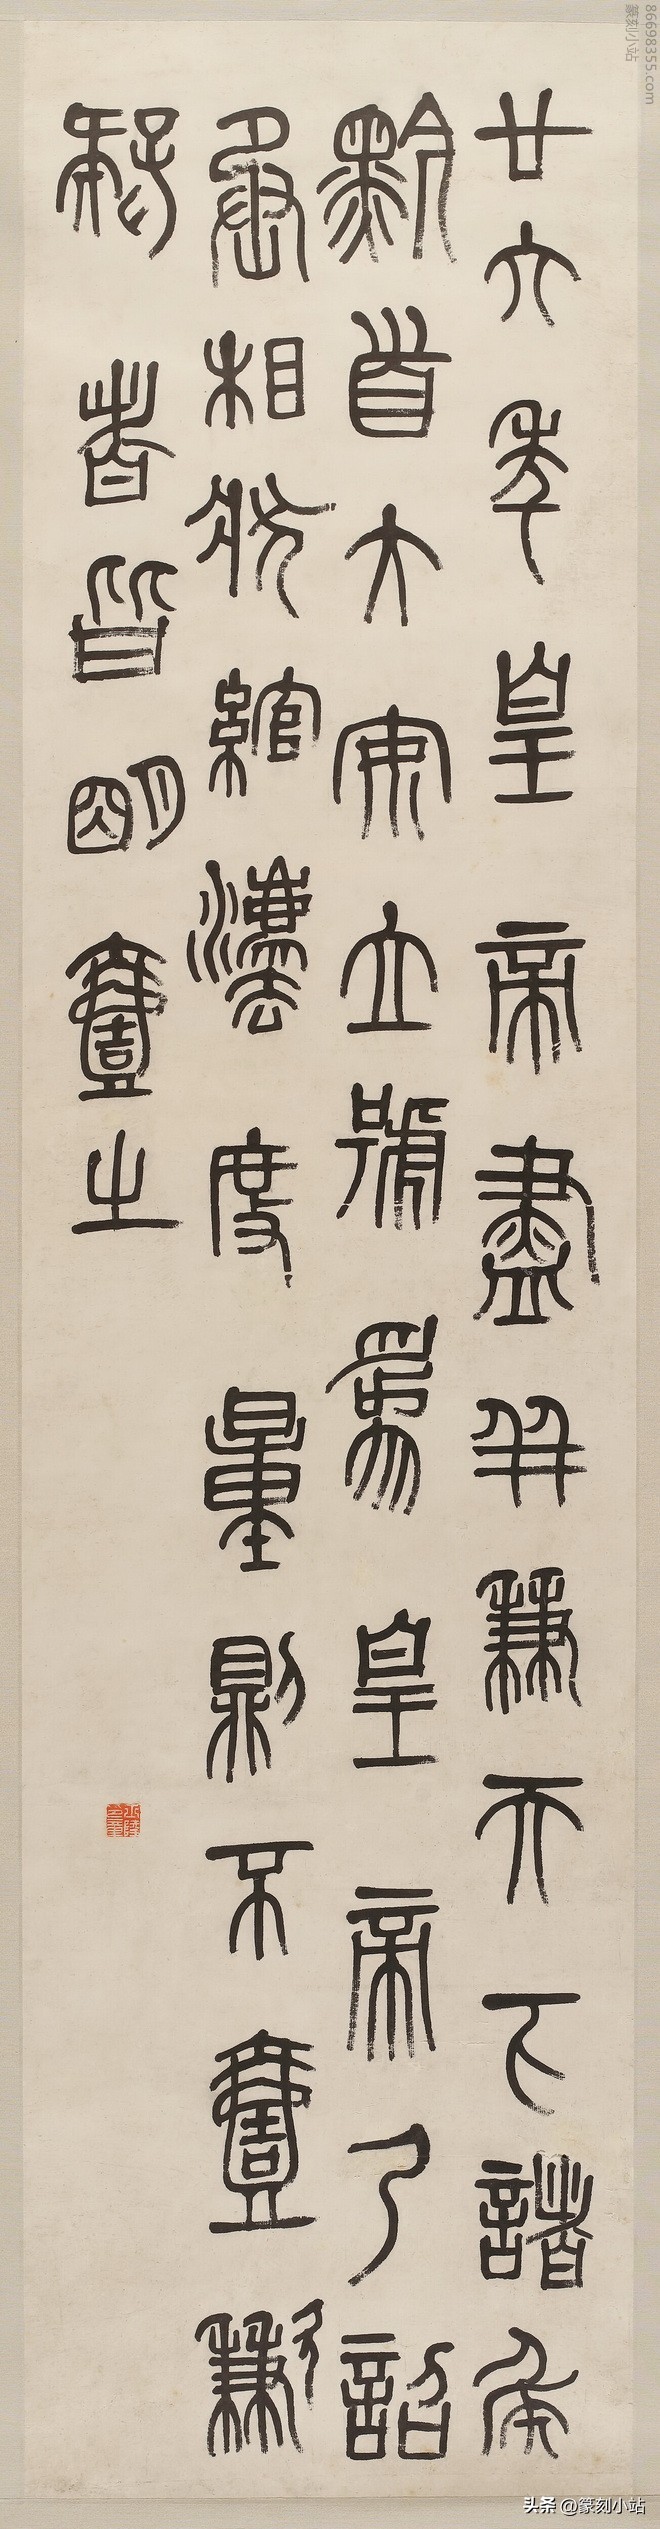 廿六年皇帝盡并兼天下諸侯
黔首大安立號爲皇帝乃詔
丞相狀綰灋度量則不壹歉
疑者皆明壹之
86698355.com
篆刻小站
头条 @篆刻小站